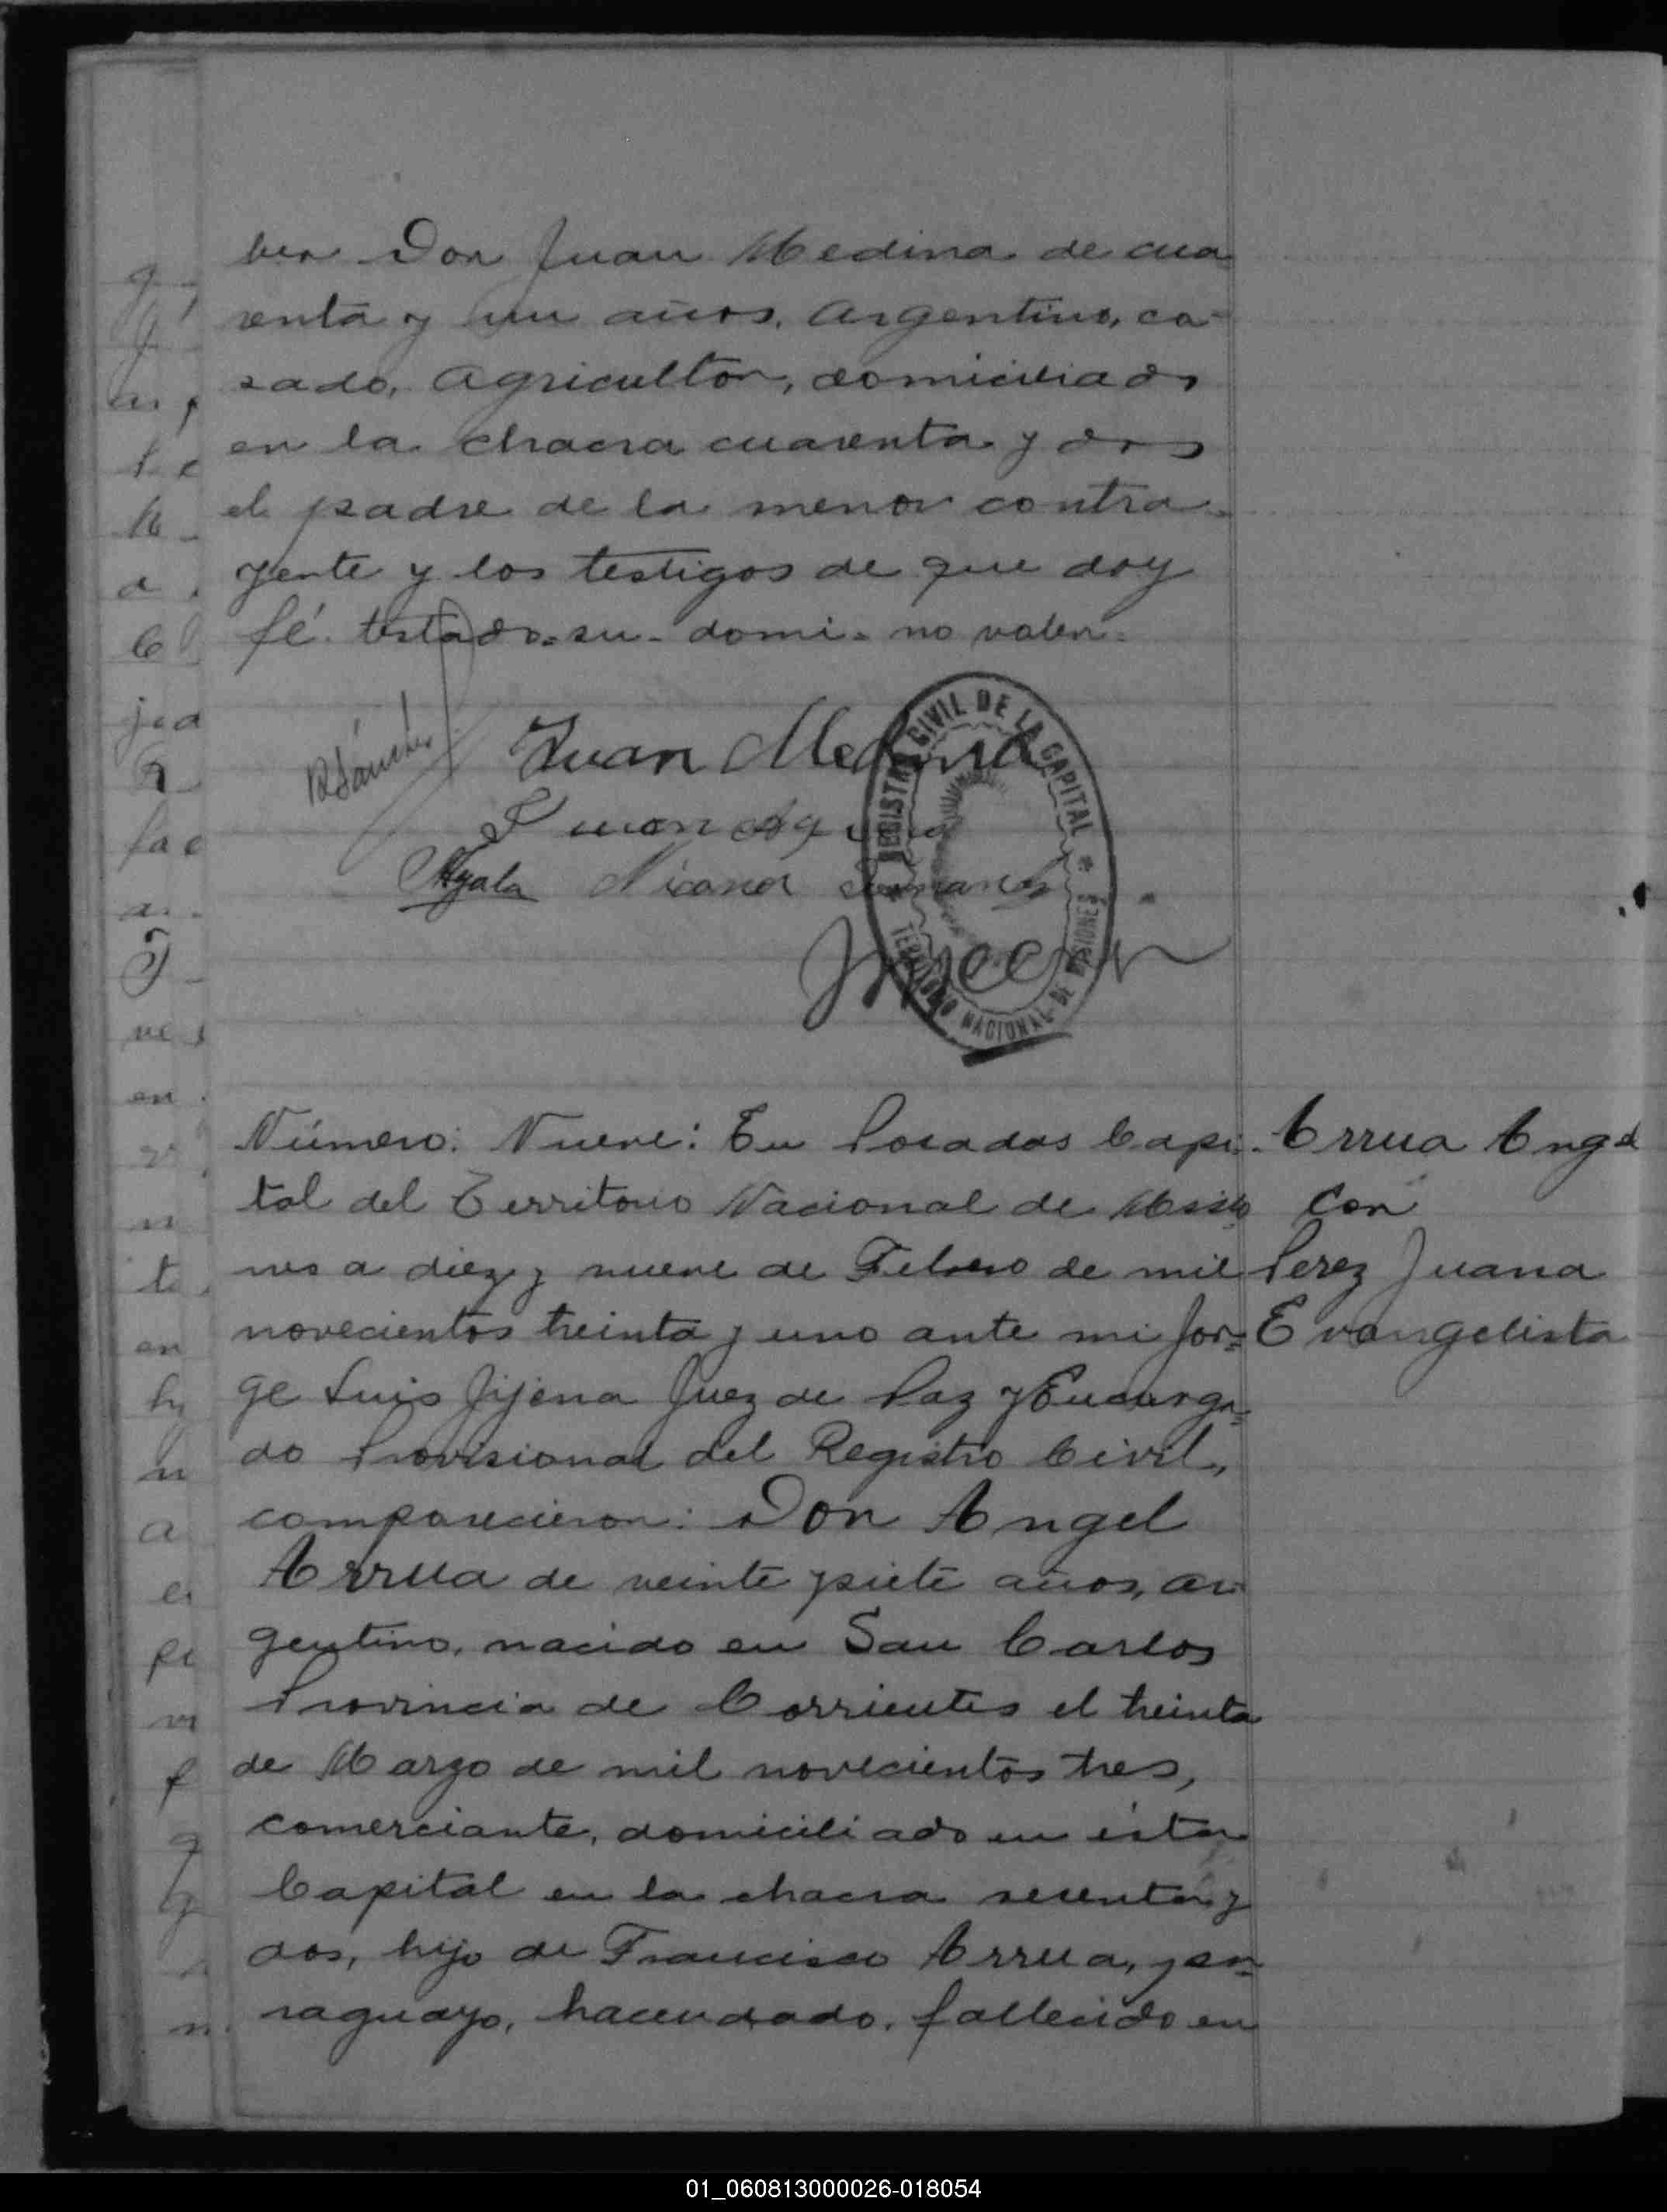 ber Don Juan Medina de cua
renta y un años, Argentino, ca-
sado, Agricultor, domiciliado
en la chacra cuarenta y dos
el padre de la menor contra-
yente y los testigos de que doy
fé. testado=su=domi=no valen=
Juan Medina
RSánchez
Juan
Ayala Nicanor
REGISTRO CIVIL DE LA CAPITAL
* TERRITORIO NACIONAL DE MISIONES *
Número: Nueve: En Posadas Capi-
tal del Territorio Nacional de Misio
nes a diez y nueve de Febrero de mil
novecientos treinta y uno ante mi Jor=
ge Luis Jijena Juez de Paz y Encarga=
do Provisional del Registro Civil,
comparecieron: Don Angel
Arrua de veinte y siete años, ar-
gentino, nacido en San Carlos
Provincia de Corrientes el treinta
de Marzo de mil novecientos tres,
comerciante, domiciliado en ésta
Capital en la chacra sesenta y
dos, hijo de Francisco Arrua, pa=
raguayo, hacendado, fallecido en
Arrua Angel
con
Perez Juana
Evangelista
01_060813000026-018054